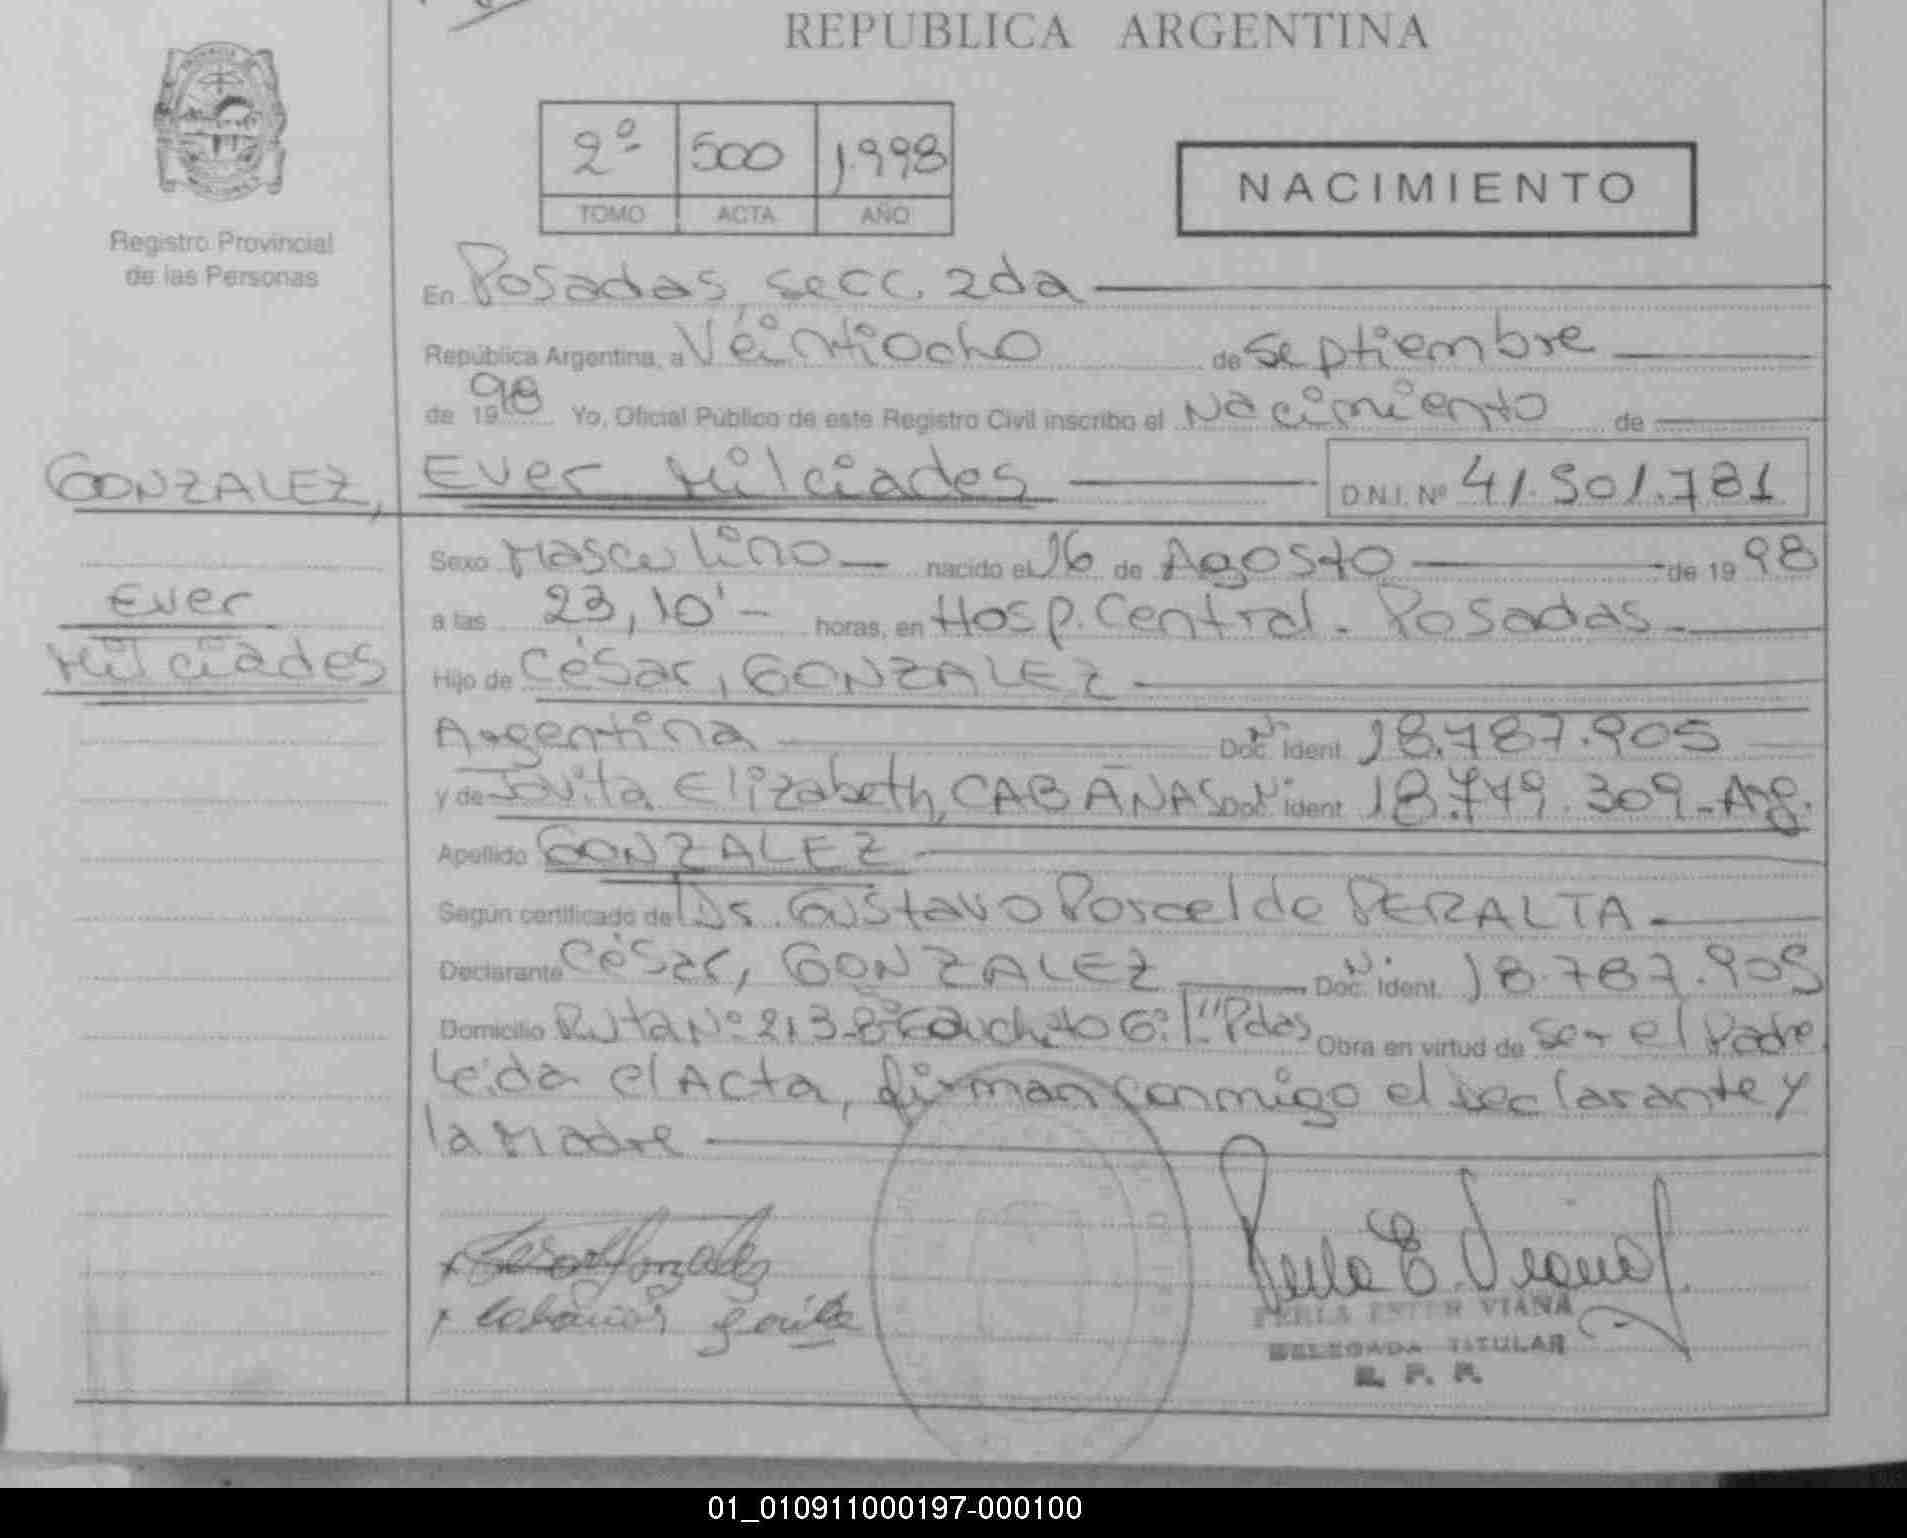 REPUBLICA ARGENTINA
2º 500 1.998
TOMO ACTA AÑO
NACIMIENTO
Registro Provincial
de las Personas
En Posadas, secc. 2da
República Argentina, a Veintiocho de Septiembre
de 1998 Yo, Oficial Público de este Registro Civil inscribo el Nacimiento de
GONZALEZ, Ever Milciades D.N.I. Nº 41.501.781
Ever
Milciades
Sexo Masculino nacido el 16 de Agosto de 1998
a las 23,10' horas, en Hosp. Central - Posadas
Hijo de César, GONZALEZ
Argentina Doc. Ident. 18.787.905
y de Jovita Elizabeth, CABAÑAS Doc. Ident. 18.749.309 - Arg.
Apellido GONZALEZ
Según certificado de Dr. Gustavo PERALTA
Declarante César, GONZALEZ Doc. Ident. 18.787.905
Domicilio Ruta Nº 213 Pdas Obra en virtud de ser el Padre
Leida el Acta, firman conmigo el declarante y
la Madre
PERLA ESTER VIANA
DELEGADA TITULAR
R. P. P.
01_010911000197-000100